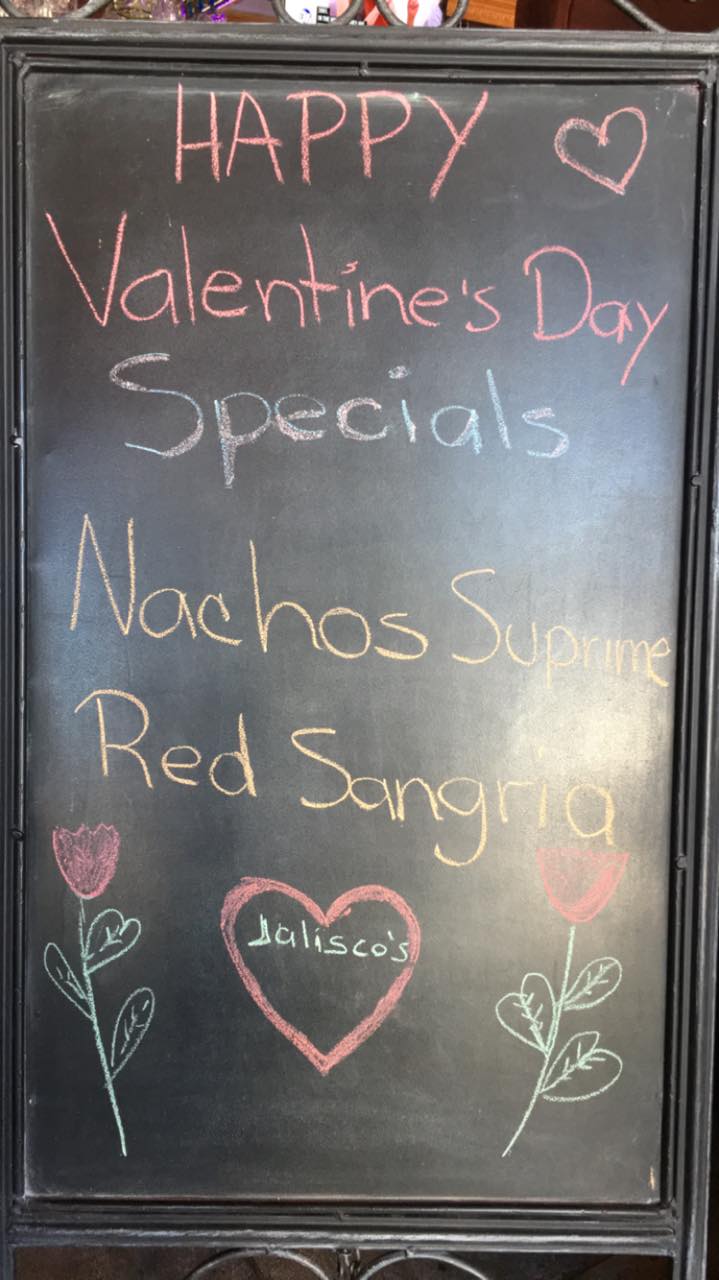 HAPPY
Valentine's Day
Specials
Nachos Suprime
Red Sangria
Jalisco's